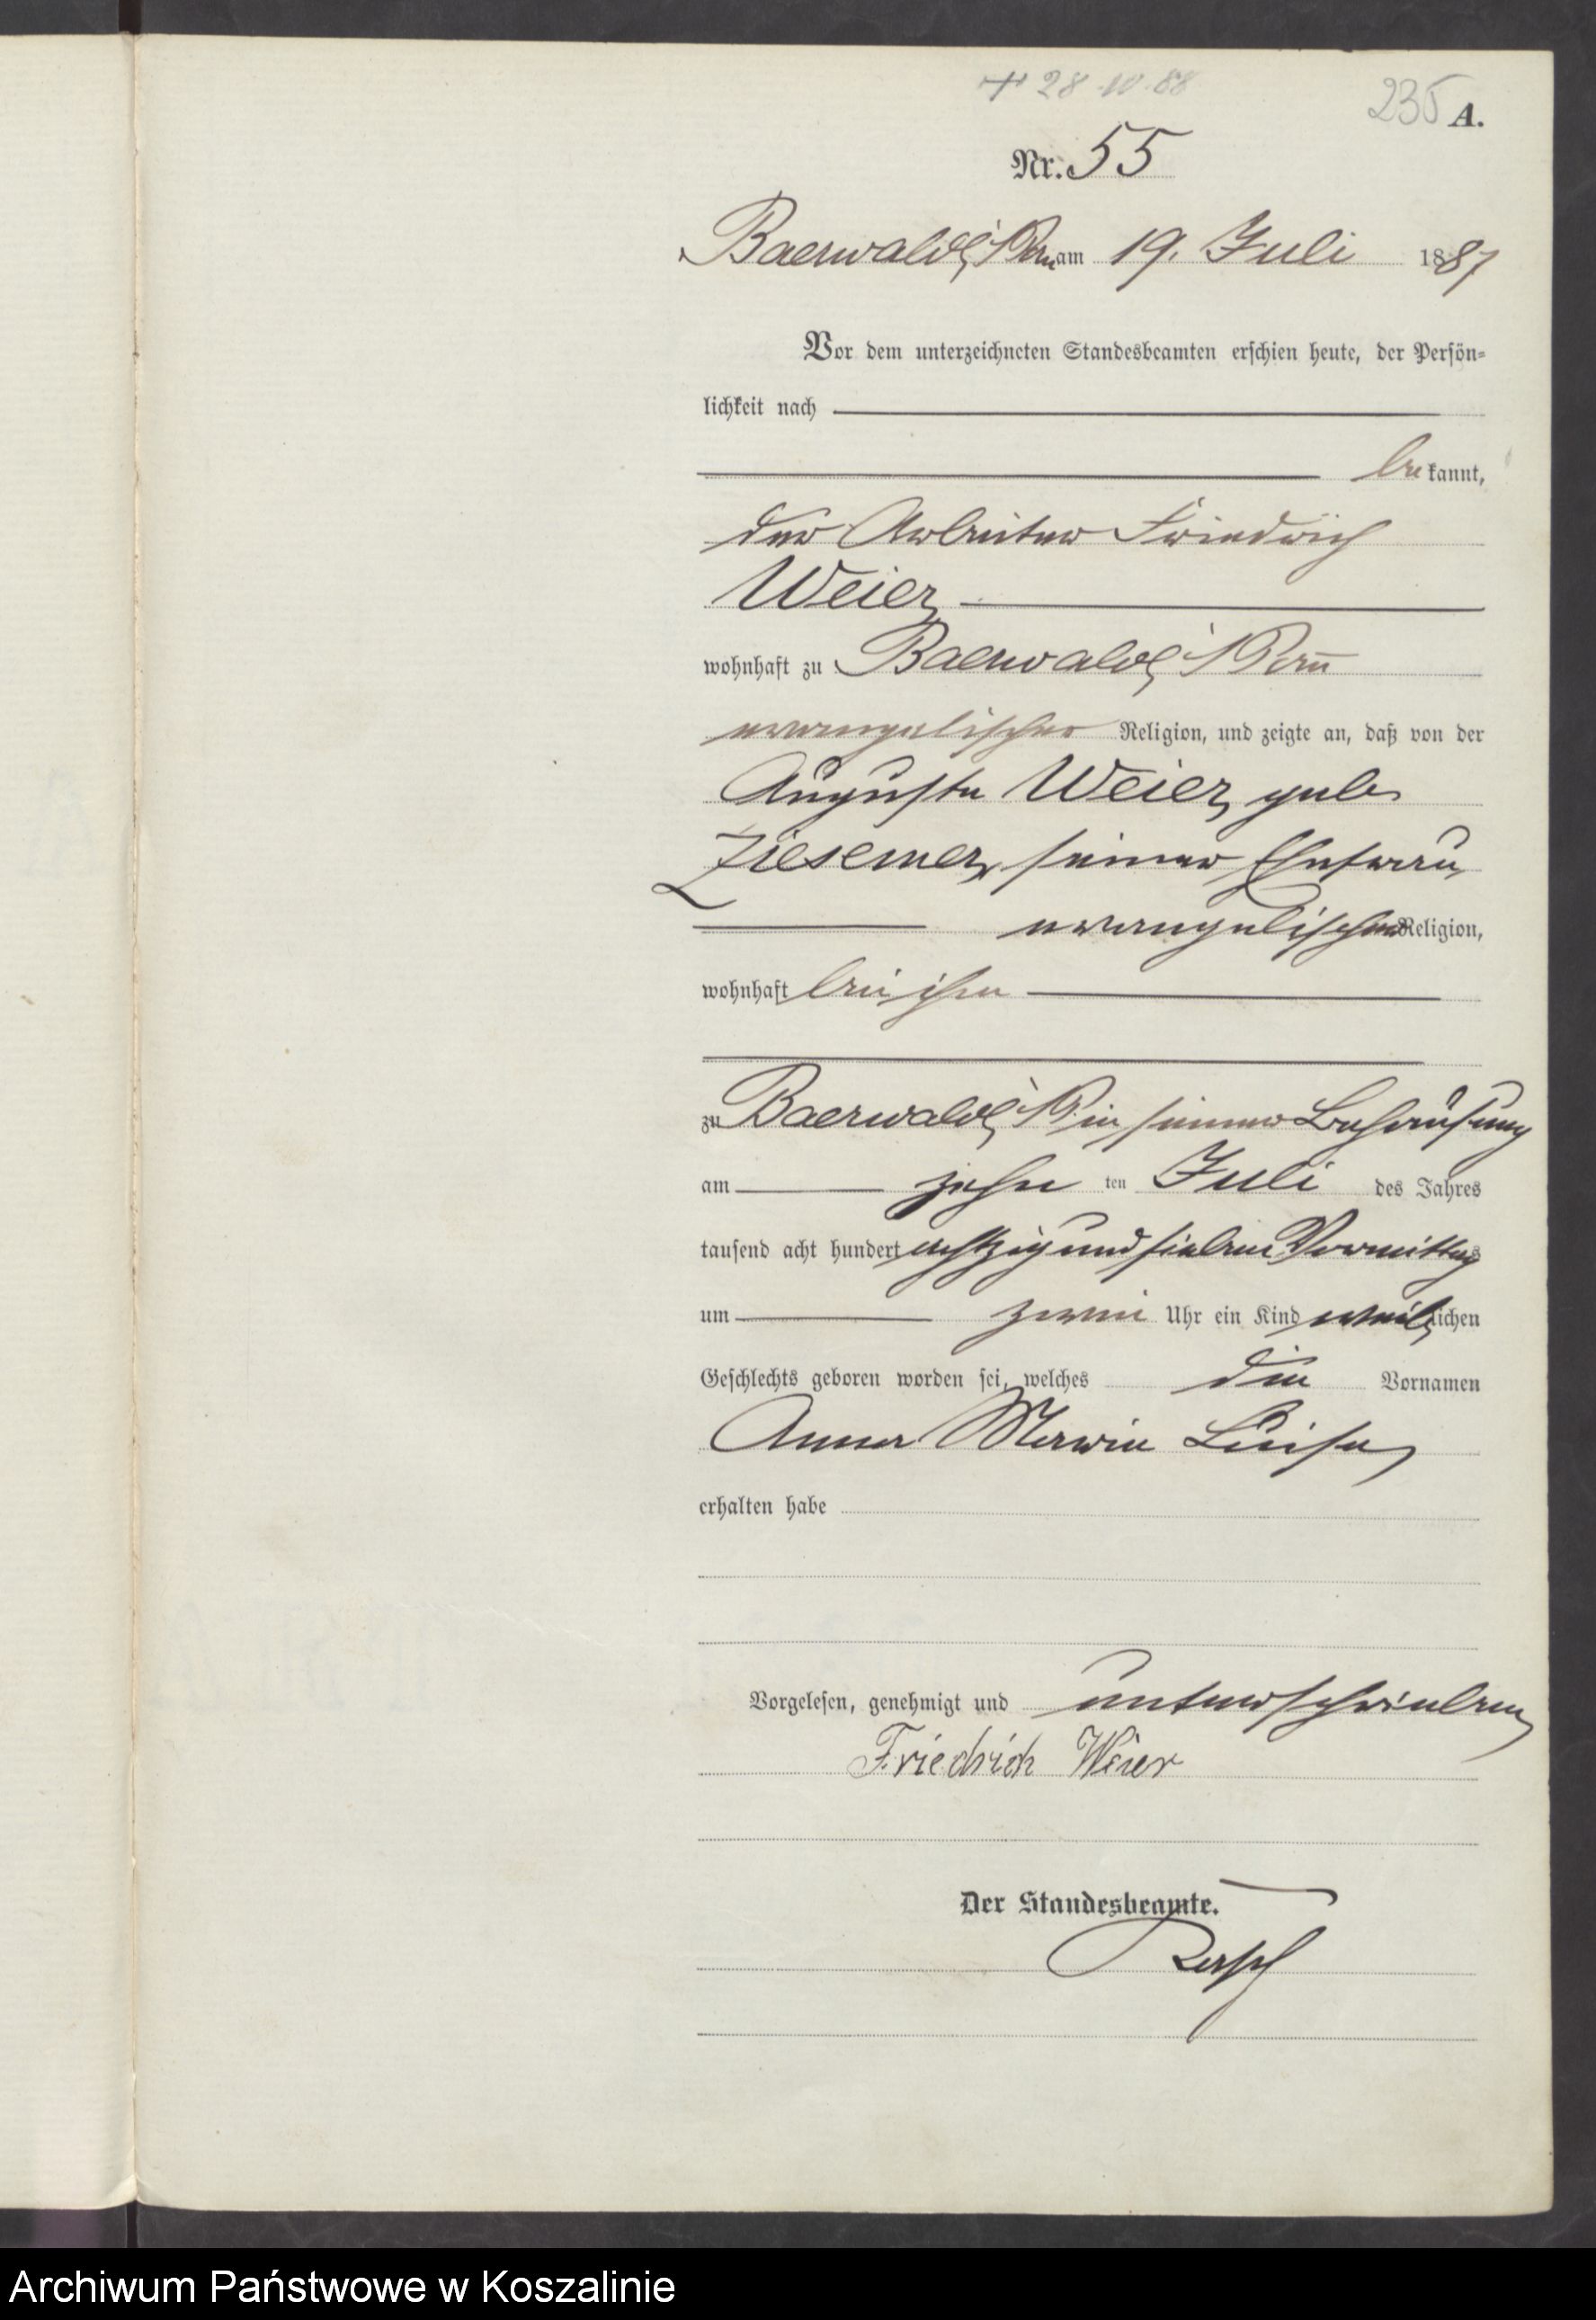 + 28.10.88
235 A.
Nr. 55
Baerwald i/Pom am 19. Juli 1887
Vor dem unterzeichneten Standesbeamten erschien heute, der Persön-
lichkeit nach
be kannt,
der Arbeiter Friedrich
Weier
wohnhaft zu Baerwald i/Pom
evangelischer Religion, und zeigte an, daß von der
Auguste Weier geb.
Ziesemer seiner Ehefrau,
evangelischer Religion,
wohnhaft bei ihm
zu Baerwald i/P. in seiner Behausung
am zehn ten Juli des Jahres
tausend acht hundert achtzig und sieben Vormittags
um zwei Uhr ein Kind weib lichen
Geschlechts geboren worden sei, welches die Vornamen
Anna Marie Luise
erhalten habe
Vorgelesen, genehmigt und unterschrieben
Friedrich Weier
Der Standesbeamte.
Archiwum Państwowe w Koszalinie